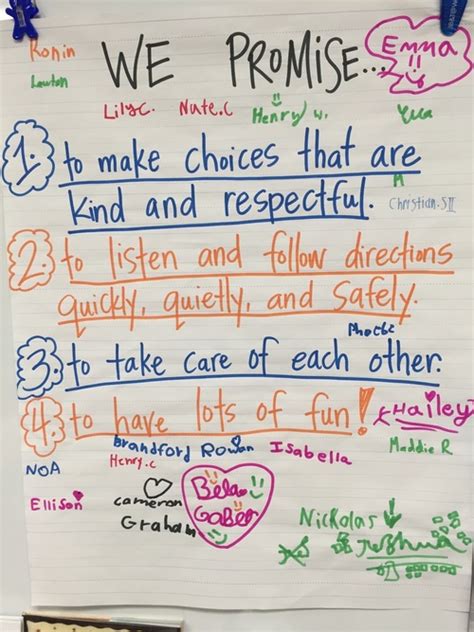 Ronin
Lawton
WE PROMISE...
Emma
Lily C.
Nate.C
Henry W.
1. to make choices that are
kind and respectful.
Christian.S II
2. to listen and follow directions
quickly, quietly, and safely.
Phoebe
3. to take care of each other.
4. to have lots of fun!
Hailey
Brandford
Rowan
Isabella
Maddie R
NOA
Henry.C
Ellison
Cameron
Graham
Bela
Nickolas
Joshua